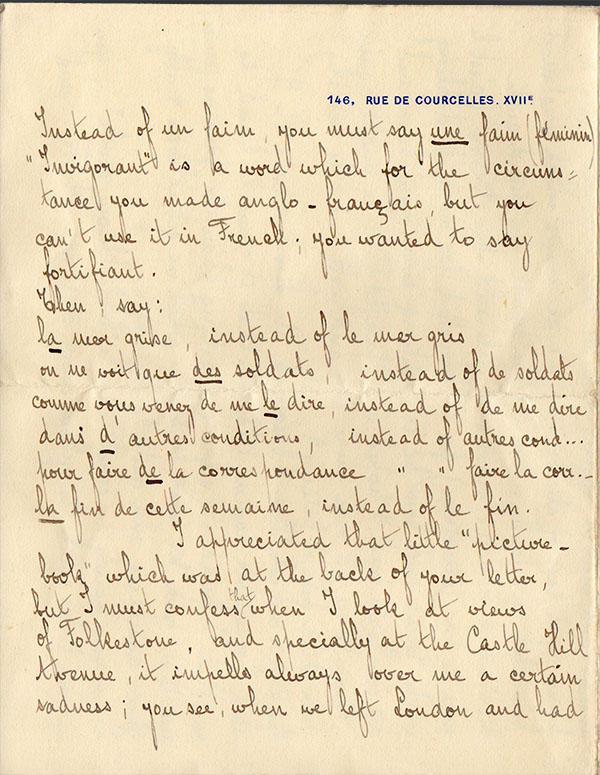 146, RUE DE COURCELLES. XVIIE
Instead of un faim, you must say une faim (féminin)
"Invigorant" is a word which for the circuns=
tance you made anglo-français, but you
can't use it in French; you wanted to say
fortifiant.
Then, say:
la mer grise, instead of le mer gris
on ne voit que des soldats, instead of de soldats
comme vous venez de me le dire, instead of de me dire
dans d'autres conditions, instead of autres cond...
pour faire de la correspondance " " faire la corr..-
la fin de cette semaine, instead of le fin.
I appreciated that little "picture-
book" which was at the back of your letter,
but I must confess that when I look at views
of Folkestone, and specially at the Castle Hill
Avenue, it impells always over me a certain
sadness; you see, when we left London and had